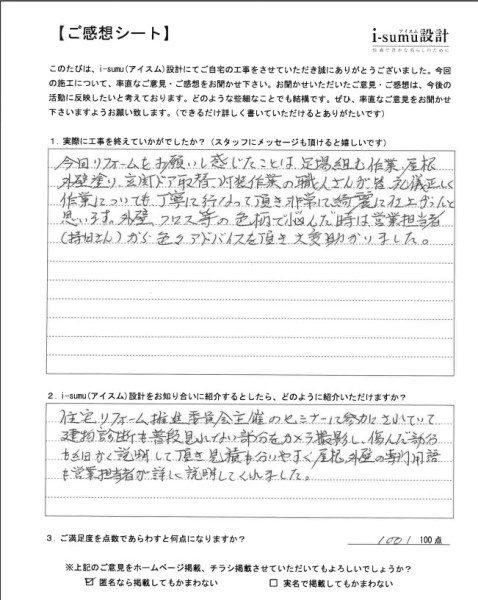 【ご感想シート】
アイスム
i-sumu設計
このたびは、i-sumu(アイスム)設計にてご自宅の工事をさせていただき誠にありがとうございました。今回
の施工について、率直なご意見・ご感想をお聞かせ下さい。お聞かせいただいたご意見・ご感想は、今後の
活動に反映したいと考えております。どのような些細なことでも結構です。ぜひ、率直なご意見をお聞かせ下
さいますようお願い致します。(できるだけ詳しく書いていただけるとありがたいです)
1.実際に工事を終えていかがでしたか?(スタッフにメッセージも頂けると嬉しいです)
今回リフォームをお願いし感じたことは、足場組む作業、屋根
外壁塗り、玄関ドア取替、内装作業の職人さんが皆、礼儀正しく
作業についても丁寧に行なって頂き非常に綺麗に仕上がったと
思います。外壁、クロス等の色柄で悩んだ時は営業担当者
(持田さん)から色々アドバイスを頂き大変助かりました。
2.i-sumu(アイスム)設計をお知り合いに紹介するとしたら、どのように紹介いただけますか?
住宅リフォーム推進委員会主催のセミナーに参加されていて
建物診断も普段見れない部分をカメラ撮影し、傷んだ部分
も細かく説明して頂き見積も分りやすく屋根、外壁の専門用語
も営業担当者が詳しく説明してくれました。
3.ご満足度を点数であらわすと何点になりますか?
100/ 100点
※上記のご意見をホームページ掲載、チラシ掲載させていただいてもよろしいでしょうか?
☑ 匿名なら掲載してもかまわない □ 実名で掲載してもかまわない